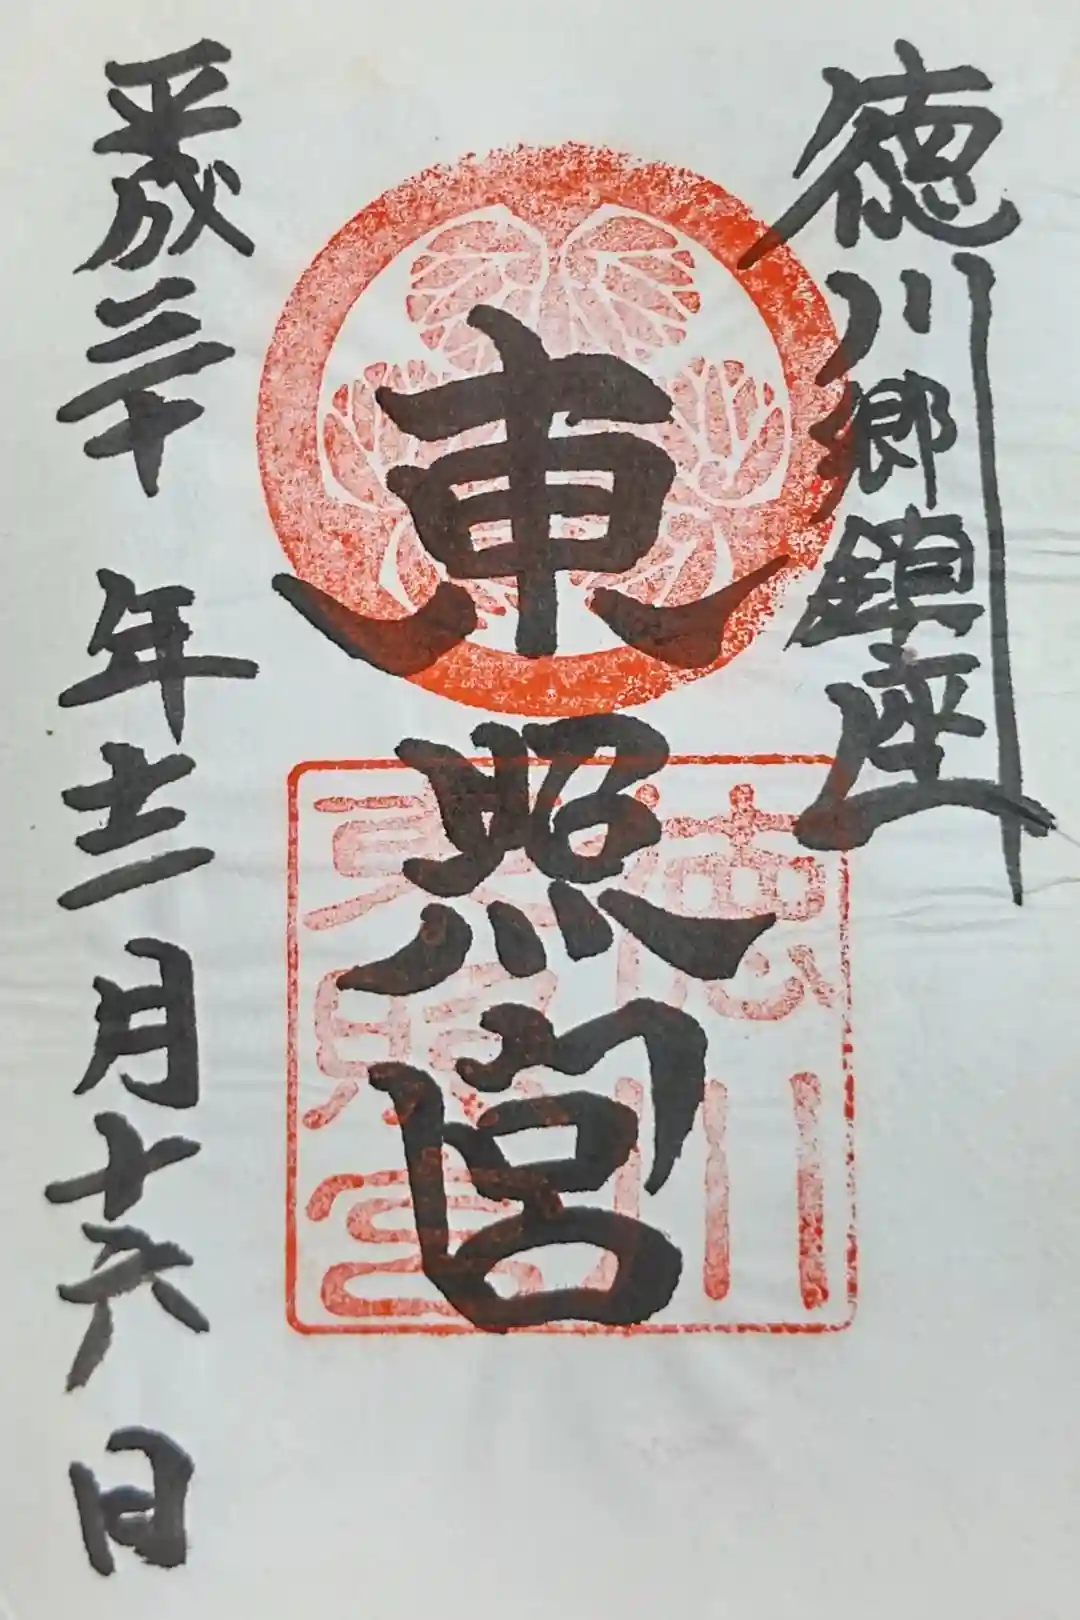 徳川郷鎮座
東照宮
徳川
東照宮
平成三十年十二月十六日